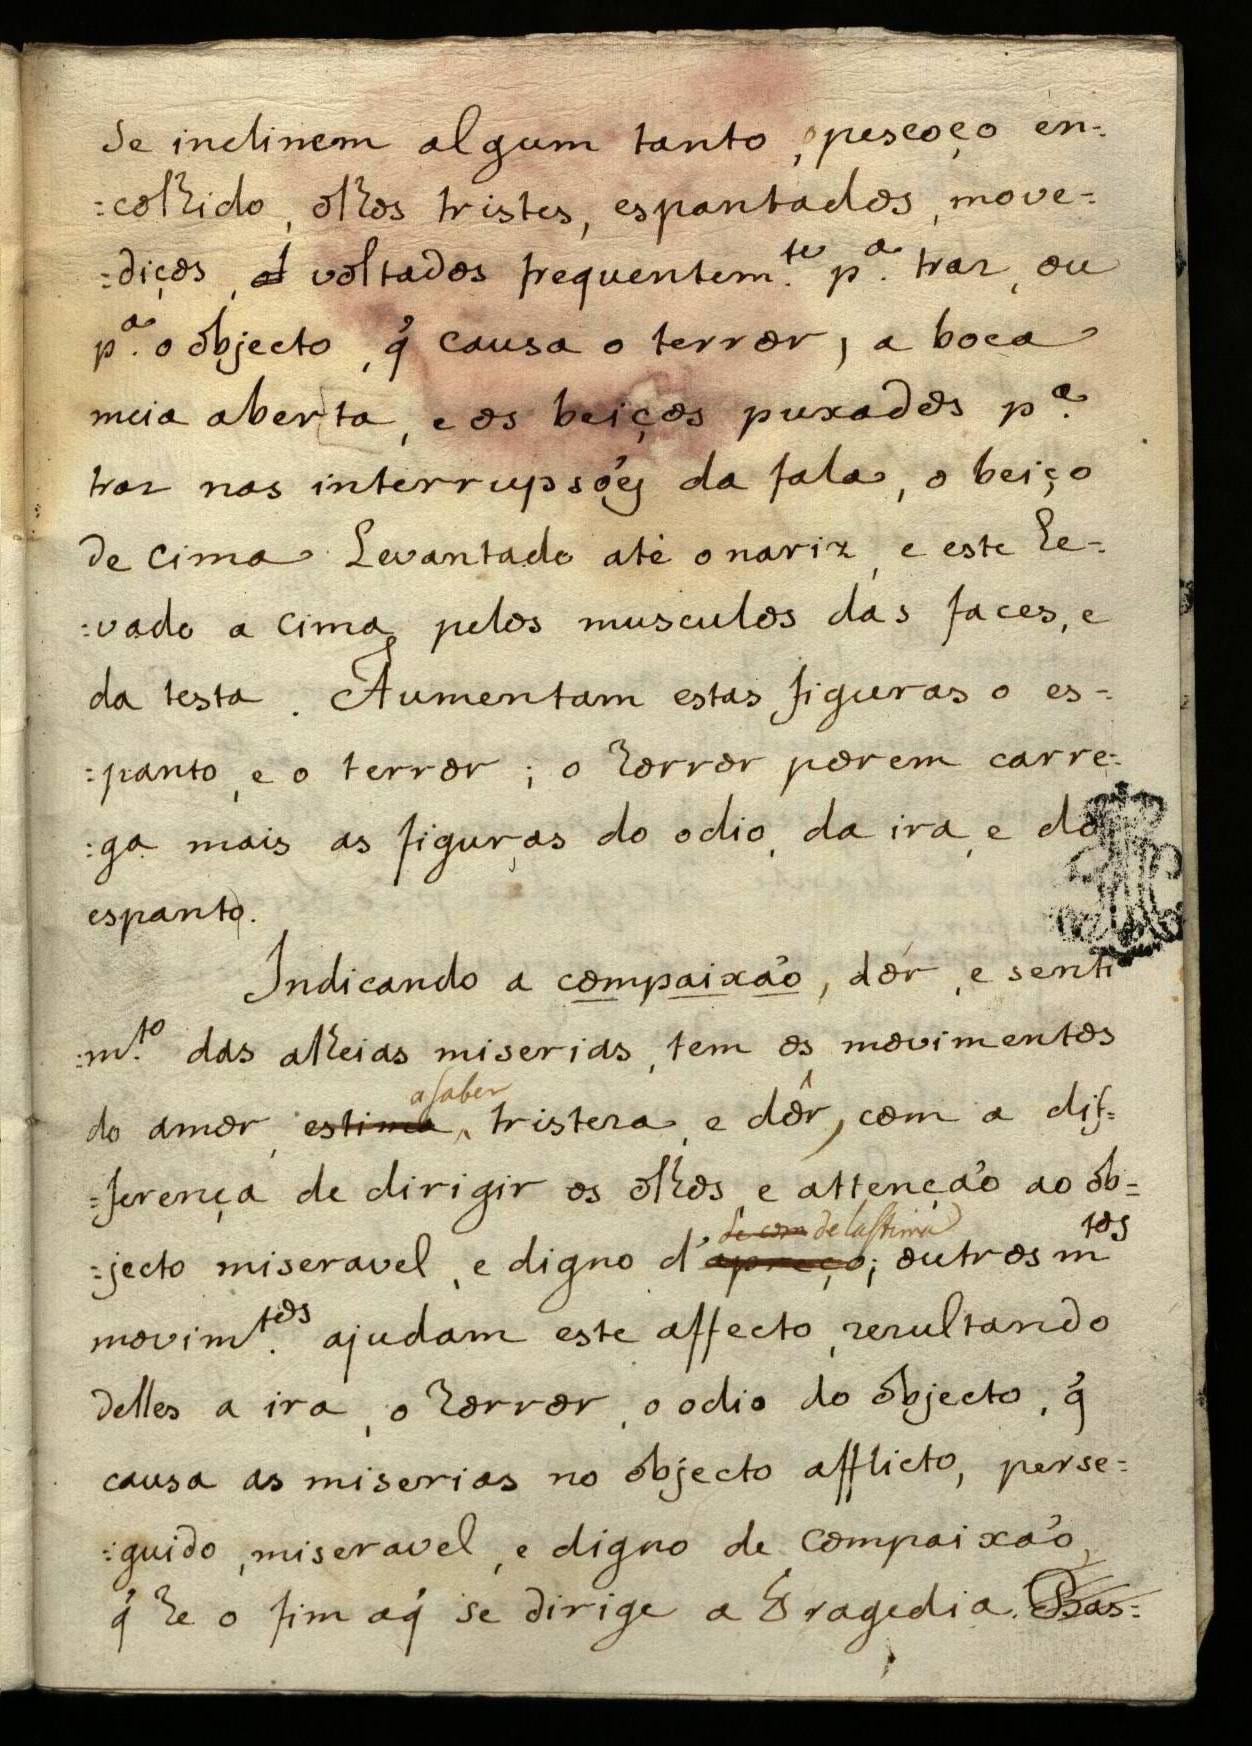 se inclinem algum tanto, o pescoço en-
-colhido, olhos tristes, espantados, move-
-diços, voltados frequentem.te p.a traz, ou
p.a o objecto, q̃ causa o terror, a boca
meia aberta, e os beiços puxados p.a
traz nas interrupsoẽs da fala, o beiço
de cima Levantado até o nariz, e este le-
-vado a cima pelos musculos das faces, e
da testa. Aumentam estas figuras o es-
-panto, e o terror; o horror porem carre-
-ga mais as figuras do odio, da ira, e do
espanto.
Indicando a compaixaõ, dór, e senti
-m.to das alheias miserias, tem os movimentos
a saber
do amor, estima, tristeza, e dôr, com a dif-
-ferença de dirigir os olhos, e attençaõ ao ob-
de com de lastima
-jecto miseravel, e digno d'apreço; outros mtos
movim.tos ajudam este affecto, rezultando
delles a ira, o horror, o odio do objecto, q̃
causa as miserias no objecto afflicto, perse-
-guido, miseravel, e digno de compaixaõ,
q̃ he o fim a q̃ se dirige a Tragedia. Bas-